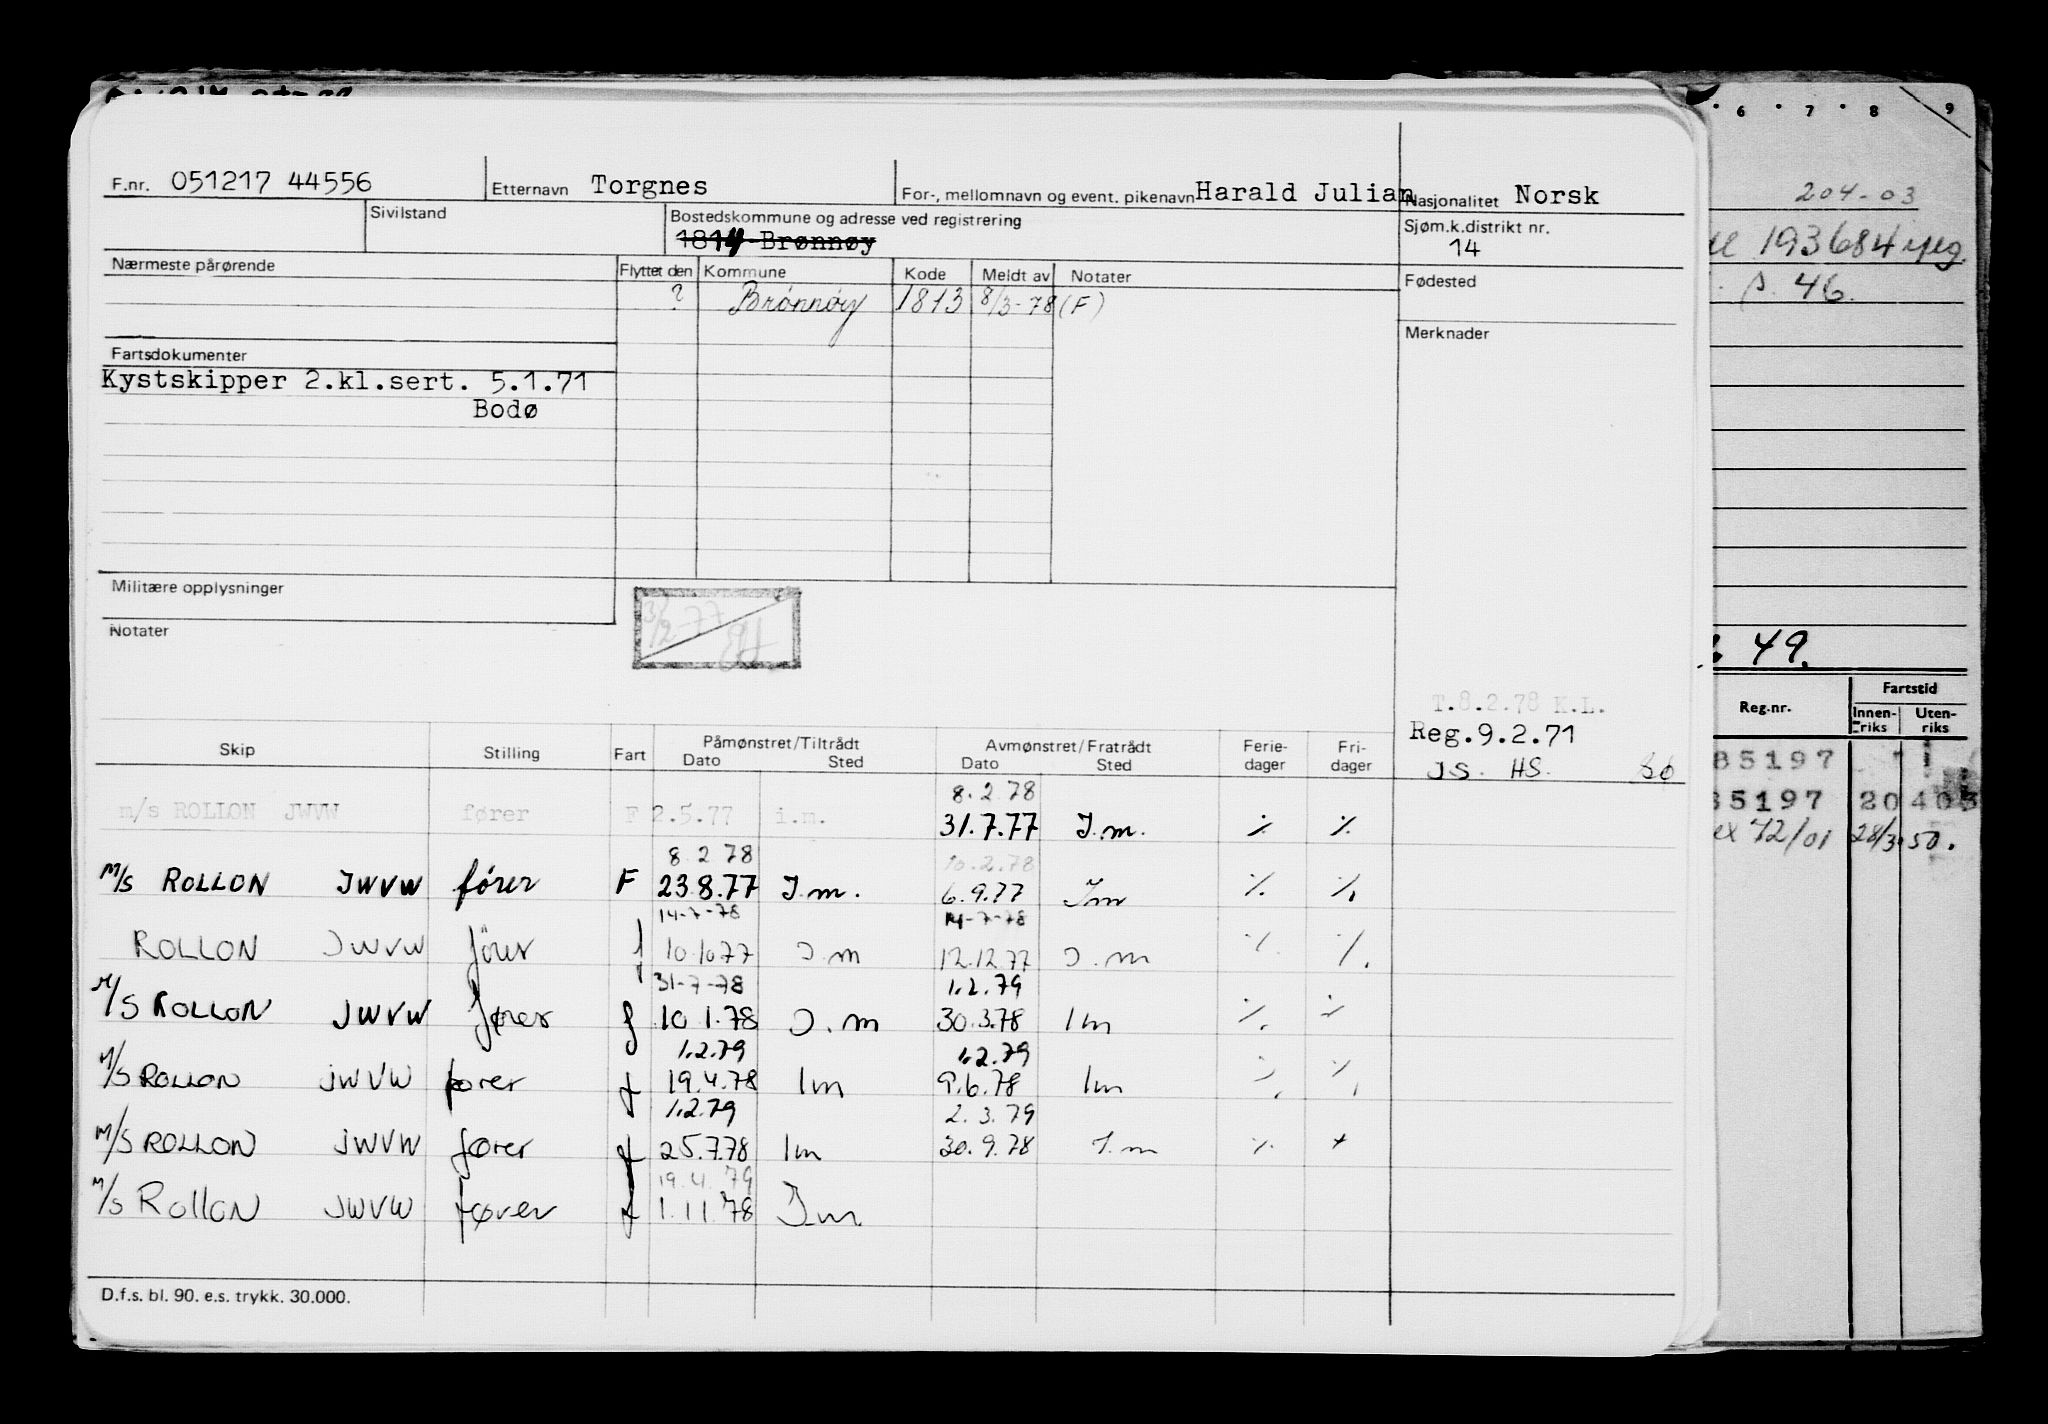 F.nr. 051217 44556 Etternavn Torgnes For-, mellomnavn og event. pikenavn Harald Julian Nasjonalitet Norsk
Sivilstand Bostedskommune og adresse ved registrering Sjøm.k.distrikt nr.
1814 Brønnøy 14
Nærmeste pårørende Flyttet den Kommune Kode Meldt av Notater Fødested
? Brönnöy 1813 8/3-78 (F)
Merknader
Fartsdokumenter
Kystskipper 2.kl.sert. 5.1.71
Bodø
Militære opplysninger
Notater
T.8.2.78 K.L.
Reg.9.2.71
JS. HS.
Skip Stilling Fart Påmønstret/Tiltrådt Avmønstret/Fratrådt Ferie- Fri-
Dato Sted Dato Sted dager dager
8.2.78
m/s ROLLON JWVW fører F 2.5.77 i.m. 31.7.77 J.m. % %
8.2 78 10.2.78
M/S ROLLON JWVW fører F 23.8.77 J.m. 6.9.77 Jm % %
14-7-78 14-7-78
ROLLON JWVW fører f 10.10 77 J.m 12.12.77 J.m % %
31-7-78 1.2.79
M/S ROLLON JWVW fører f 10.1.78 J.m 30.3.78 Im % %
1.2.79 1.2.79
M/S ROLLON JWVW fører f 19.4.78 Im 9.6.78 Im % %
1.2.79 2.3.79
M/S ROLLON JWVW fører f 25.7.78 Im 30.9.78 J.m %
19.4.79
M/S Rollon JWVW fører f 1.11.78 Jm
D.f.s. bl. 90. e.s. trykk. 30.000.
6 7 8 9
204-03
193684
s. 46.
49.
Reg.nr. Fartstid
Innen- Uten-
riks riks
85197
85197 20 403
72/01 28/3 50.